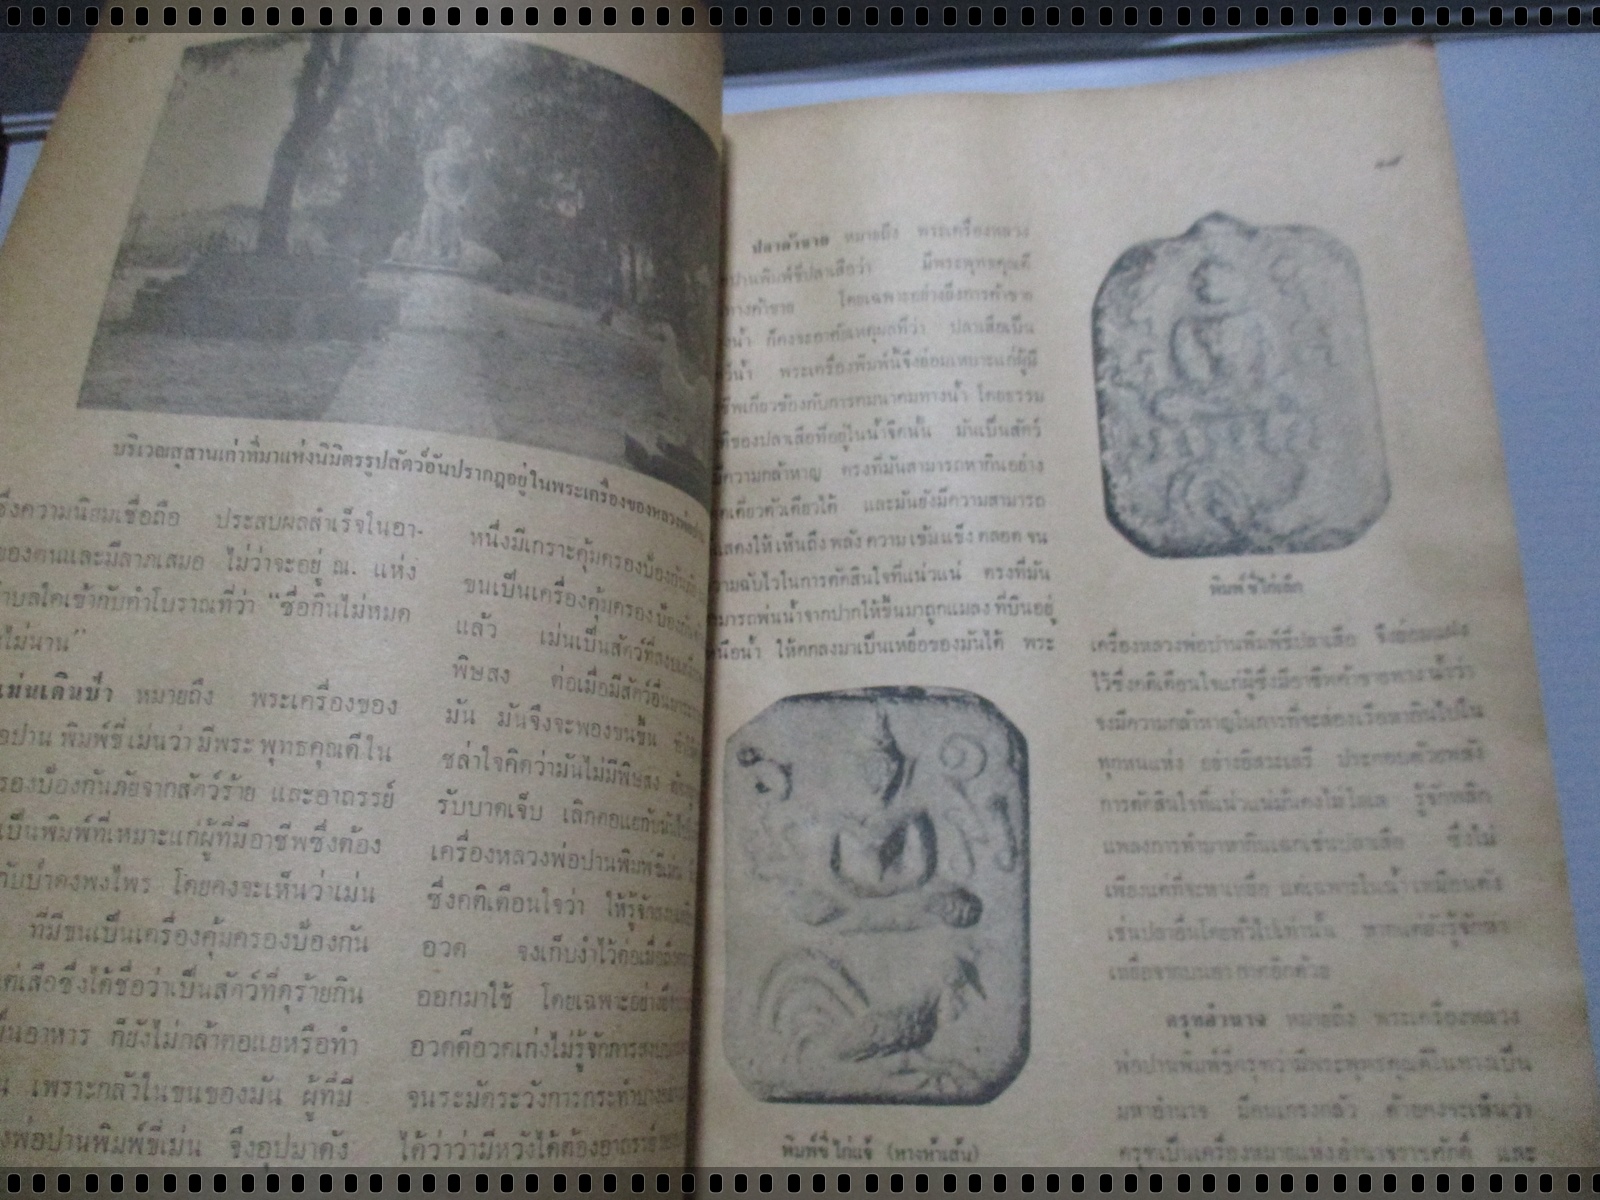 บริเวณสุสานเก่าที่มาแห่งนิมิตรรูปสัตว์อันปรากฎอยู่ในพระเครื่องของหลวงพ่อปาน
ซึ่งความนิยมเชื่อถือ ประสบผลสำเร็จในอา-
ของตนและมีลาภเสมอ ไม่ว่าจะอยู่ ณ. แห่ง
ตำบลใดเข้ากับทำโบราณที่ว่า “ชื่อกินไม่หมด
ไม่นาน”
เม่นเดินป่า หมายถึง พระเครื่องของ
อปาน พิมพ์ขี่เม่นว่ามีพระพุทธคุณดีใน
รองป้องกันภัยจากสัตว์ร้าย และอาถรรย์
เป็นพิมพ์ที่เหมาะแก่ผู้ที่มีอาชีพซึ่งต้อง
กับป่าดงพงไพร โดยคงจะเห็นว่าเม่น
ที่มีขนเป็นเครื่องคุ้มครองป้องกัน
แต่เสือซึ่งได้ชื่อว่าเป็นสัตว์ที่ดุร้ายกิน
เป็นอาหาร ก็ยังไม่กล้าตอแยหรือทำ
เพราะกลัวในขนของมัน ผู้ที่มี
งพ่อปานพิมพ์ขี่เม่น จึงอุปมาดัง
หนึ่งมีเกราะคุ้มครองป้องกัน
ขนเป็นเครื่องคุ้มครองป้องกัน
แล้ว เม่นเป็นสัตว์ที่สงบ
พิษสง ต่อเมื่อมีสัตว์อื่น
มัน มันจึงจะพองขนขึ้น
ชล่าใจคิดว่ามันไม่มีพิษสง
รับบาดเจ็บ เลิกตอแยกับมัน
เครื่องหลวงพ่อปานพิมพ์ขี่เม่น
ซึ่งคติเตือนใจว่า ให้รู้จัก
อวด จงเก็บงำไว้ต่อเมื่อถึง
ออกมาใช้ โดยเฉพาะอย่า
อวดดีอวดเก่งไม่รู้จักการสงบ
จนระมัดระวังการกระทำบาง
ได้ว่าว่ามีหวังได้ต้องอาถรรย์
ปลาค้าขาย หมายถึง พระเครื่องหลวง
ปานพิมพ์ขี่ปลาเสือว่า มีพระพุทธคุณดี
ทางค้าขาย โดยเฉพาะอย่างยิ่งการค้าขาย
น้ำ ก็คงจะอาศัยเหตุผลที่ว่า ปลาเสือเป็น
น้ำ พระเครื่องพิมพ์นี้จึงย่อมเหมาะแก่ผู้มี
ชีพเกี่ยวข้องกับการคมนาคมทางน้ำ โดยธรรม
ที่ของปลาเสือที่อยู่ในน้ำจืดนั้น มันเป็นสัตว์
มีความกล้าหาญ ตรงที่มันสามารถหากินอย่าง
เดี่ยวตัวเดียวได้ และมันยังมีความสามารถ
แสดงให้เห็นถึงพลังความเข้มแข็ง ตลอดจน
วามฉับไวในการตัดสินใจที่แน่วแน่ ตรงที่มัน
ามารถพ่นน้ำจากปากให้ขึ้นมาถูกแมลงที่บินอยู่
เหนือน้ำ ให้ตกลงมาเป็นเหยื่อของมันได้ พระ
พิมพ์ขี่ไก่แจ้ (หางห้าเส้น)
พิมพ์ขี่ไก่เล็ก
เครื่องหลวงพ่อปานพิมพ์ขี่ปลาเสือ จึงย่อมแฝง
ไว้ซึ่งคติเตือนใจแก่ผู้ซึ่งมีอาชีพค้าขายทางน้ำว่า
จงมีความกล้าหาญในการที่จะล่องเรือหากินไปใน
ทุกหนแห่ง อย่างอิสระเสรี ประกอบด้วยพลัง
การตัดสินใจที่แน่วแน่มั่นคงไม่โลเล รู้จักพลิก
แพลงการทำมาหากินเฉกเช่นปลาเสือ ซึ่งไม่
เพียงแต่ที่จะหาเหยื่อ แต่เฉพาะในน้ำเหมือนดัง
เช่นปลาอื่นโดยทั่วไปเท่านั้น หากแต่ยังรู้จักหา
เหยื่อจากบนอากาศอีกด้วย
ครุฑอำนาจ หมายถึง พระเครื่องหลวง
พ่อปานพิมพ์ขี่ครุฑว่ามีพระพุทธคุณดีในทางเป็น
มหาอำนาจ มีคนเกรงกลัว ด้วยคงจะเห็นว่า
ครุฑเป็นเครื่องหมายแห่งอำนาจราชศักดิ์ และ